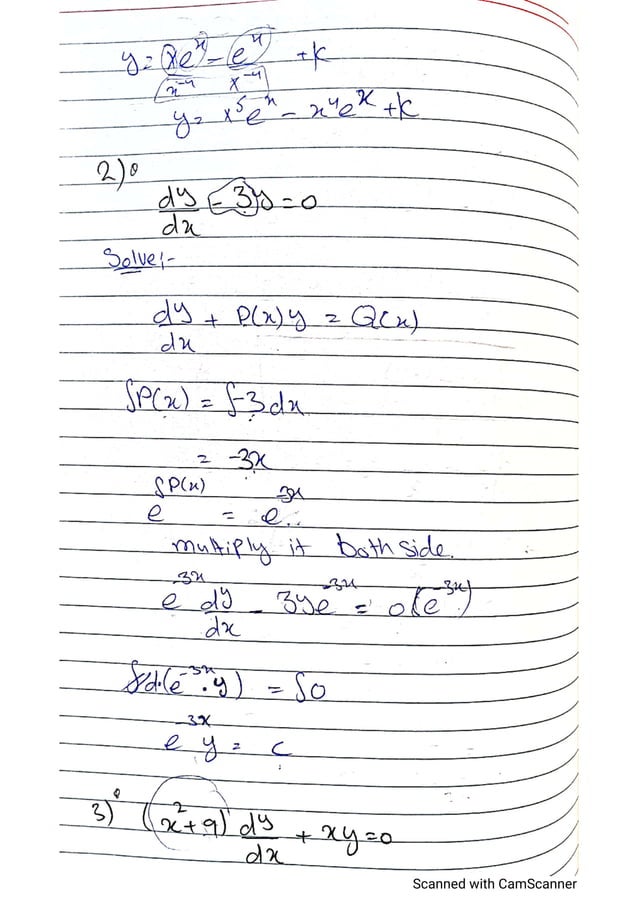 y = xeˣ - eˣ + k
x⁻⁴ x⁻⁴
y = x⁵eˣ - x⁴eˣ + k
2)
dy/dx - 3y = 0
Solve:-
dy/dx + P(x)y = Q(x)
∫P(x) = ∫-3dx
= -3x
e^∫P(x) = e^-3x
multiply it both side.
e^-3x dy/dx - 3ye^-3x = 0(e^-3x)
∫d.(e^-3x . y) = ∫0
e^-3x y = c
3) (x²+9) dy/dx + xy = 0
Scanned with CamScanner